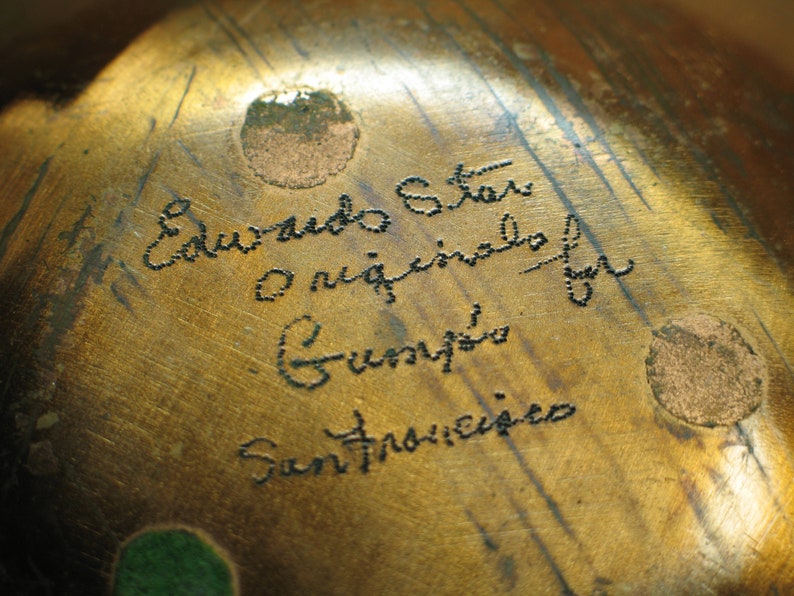 Edwards Star
Originals for
Gump's
San Francisco